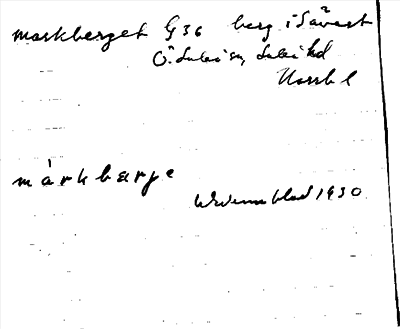 markberget G36 berg i Sävast
Ö. Luleå sn, Luleå hd
Norrb l
màrkbærje
Wennblad 1930